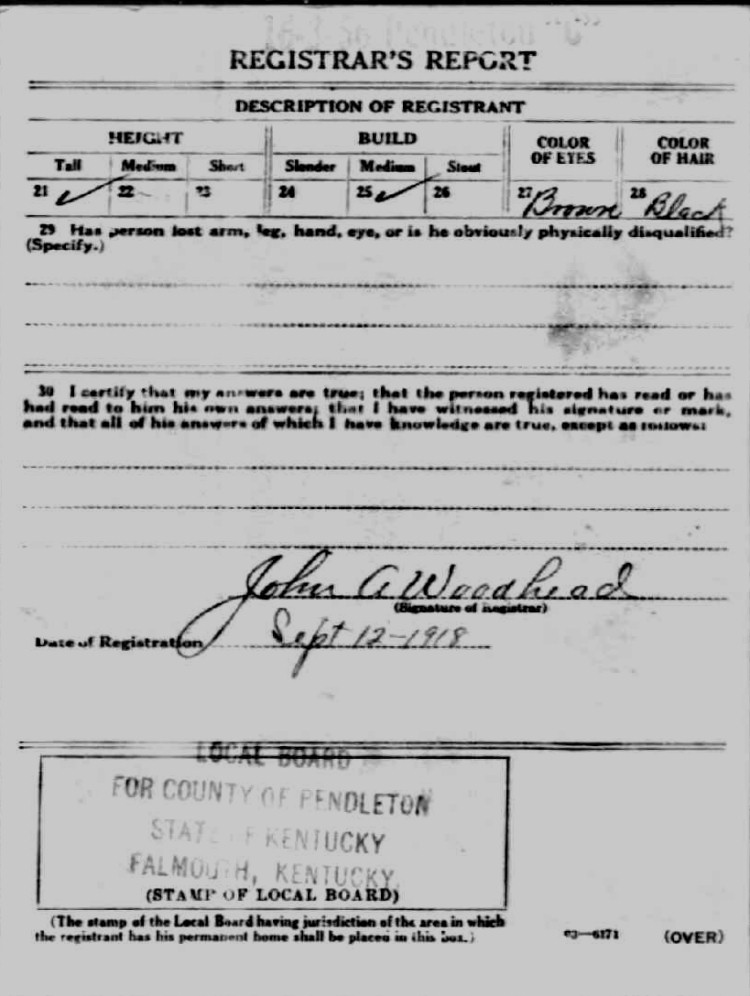 16-3-56 Pendleton "C"
REGISTRAR'S REPORT
DESCRIPTION OF REGISTRANT
HEIGHT BUILD COLOR OF EYES COLOR OF HAIR
Tall Medium Short Slender Medium Stout
21 ✓ 22 23 24 25 ✓ 26 27 Brown 28 Black
29 Has person lost arm, leg, hand, eye, or is he obviously physically disqualified?
(Specify.)
30 I certify that my answers are true; that the person registered has read or has
had read to him his own answers; that I have witnessed his signature or mark,
and that all of his answers of which I have knowledge are true, except as follows:
John A Woodhead
(Signature of Registrar)
Date of Registration Sept 12-1918
LOCAL BOARD
FOR COUNTY OF PENDLETON
STATE OF KENTUCKY
FALMOUTH, KENTUCKY.
(STAMP OF LOCAL BOARD)
(The stamp of the Local Board having jurisdiction of the area in which
the registrant has his permanent home shall be placed in this box.)
03—6171 (OVER)